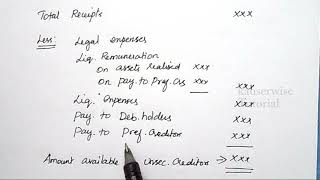 Total Receipts xxx
Less: Legal expenses
Liq. Remuneration
On assets realised xxx
on Pay. to Pref. Crs xxx xxx
Liq. Expenses xxx
Pay. to Deb. holders xxx
Pay. to Pref. Creditor xxx
Amount available Unsec. Creditor → xxx
kauserwise
torial